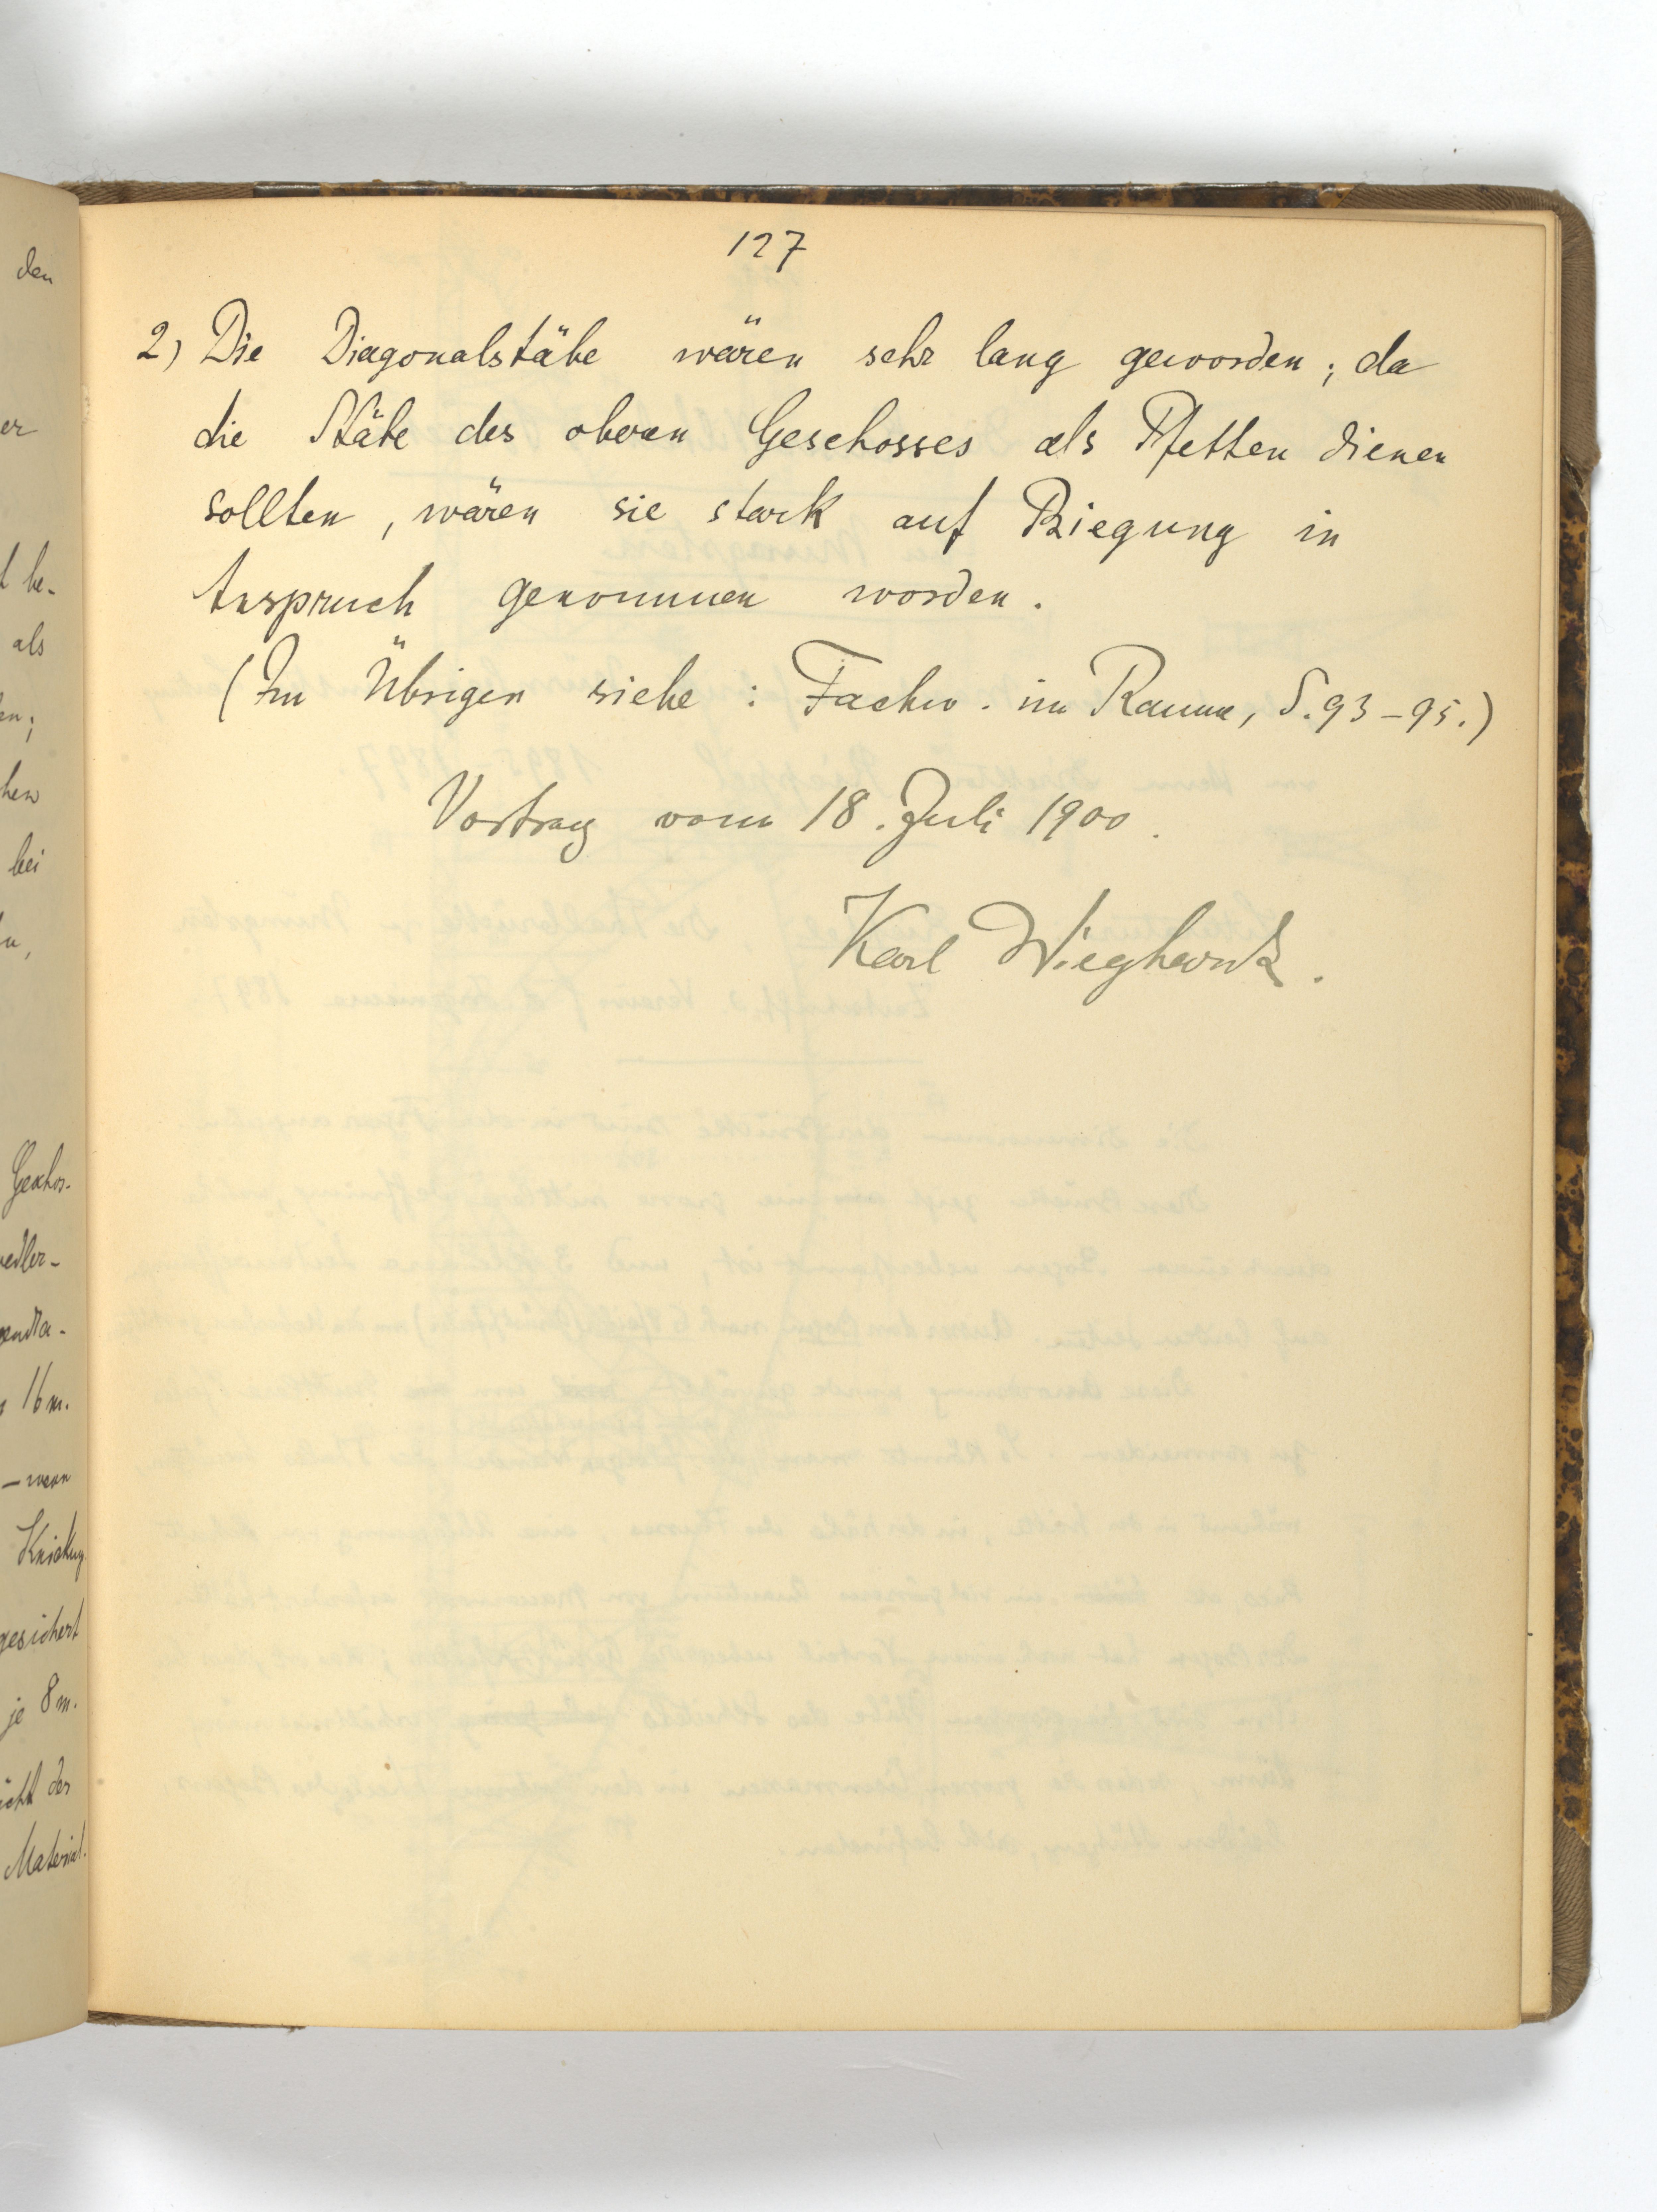 127
2) Die Diagonalstäbe wären sehr lang geworden; da
die Stäbe des oberen Geschosses als Pfetten dienen
sollten, wären sie stark auf Biegung in
Anspruch genommen worden.
(Im Übrigen siehe: Fachw. im Raume, S. 93-95.)
Vortrag vom 18. Juli 1900.
Karl Wieghardt.
den
er
be-
als
bei
Geschos-
16 m.
- wenn
Knickung
gesichert
je 8 m.
der
Material.